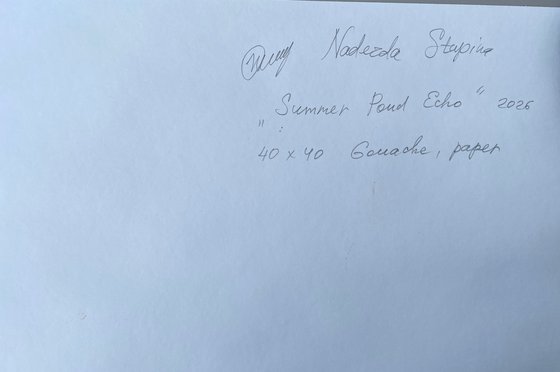 Nadezda Stupina
„Summer Pond Echo“ 2025
40 x 40 Gouache, paper